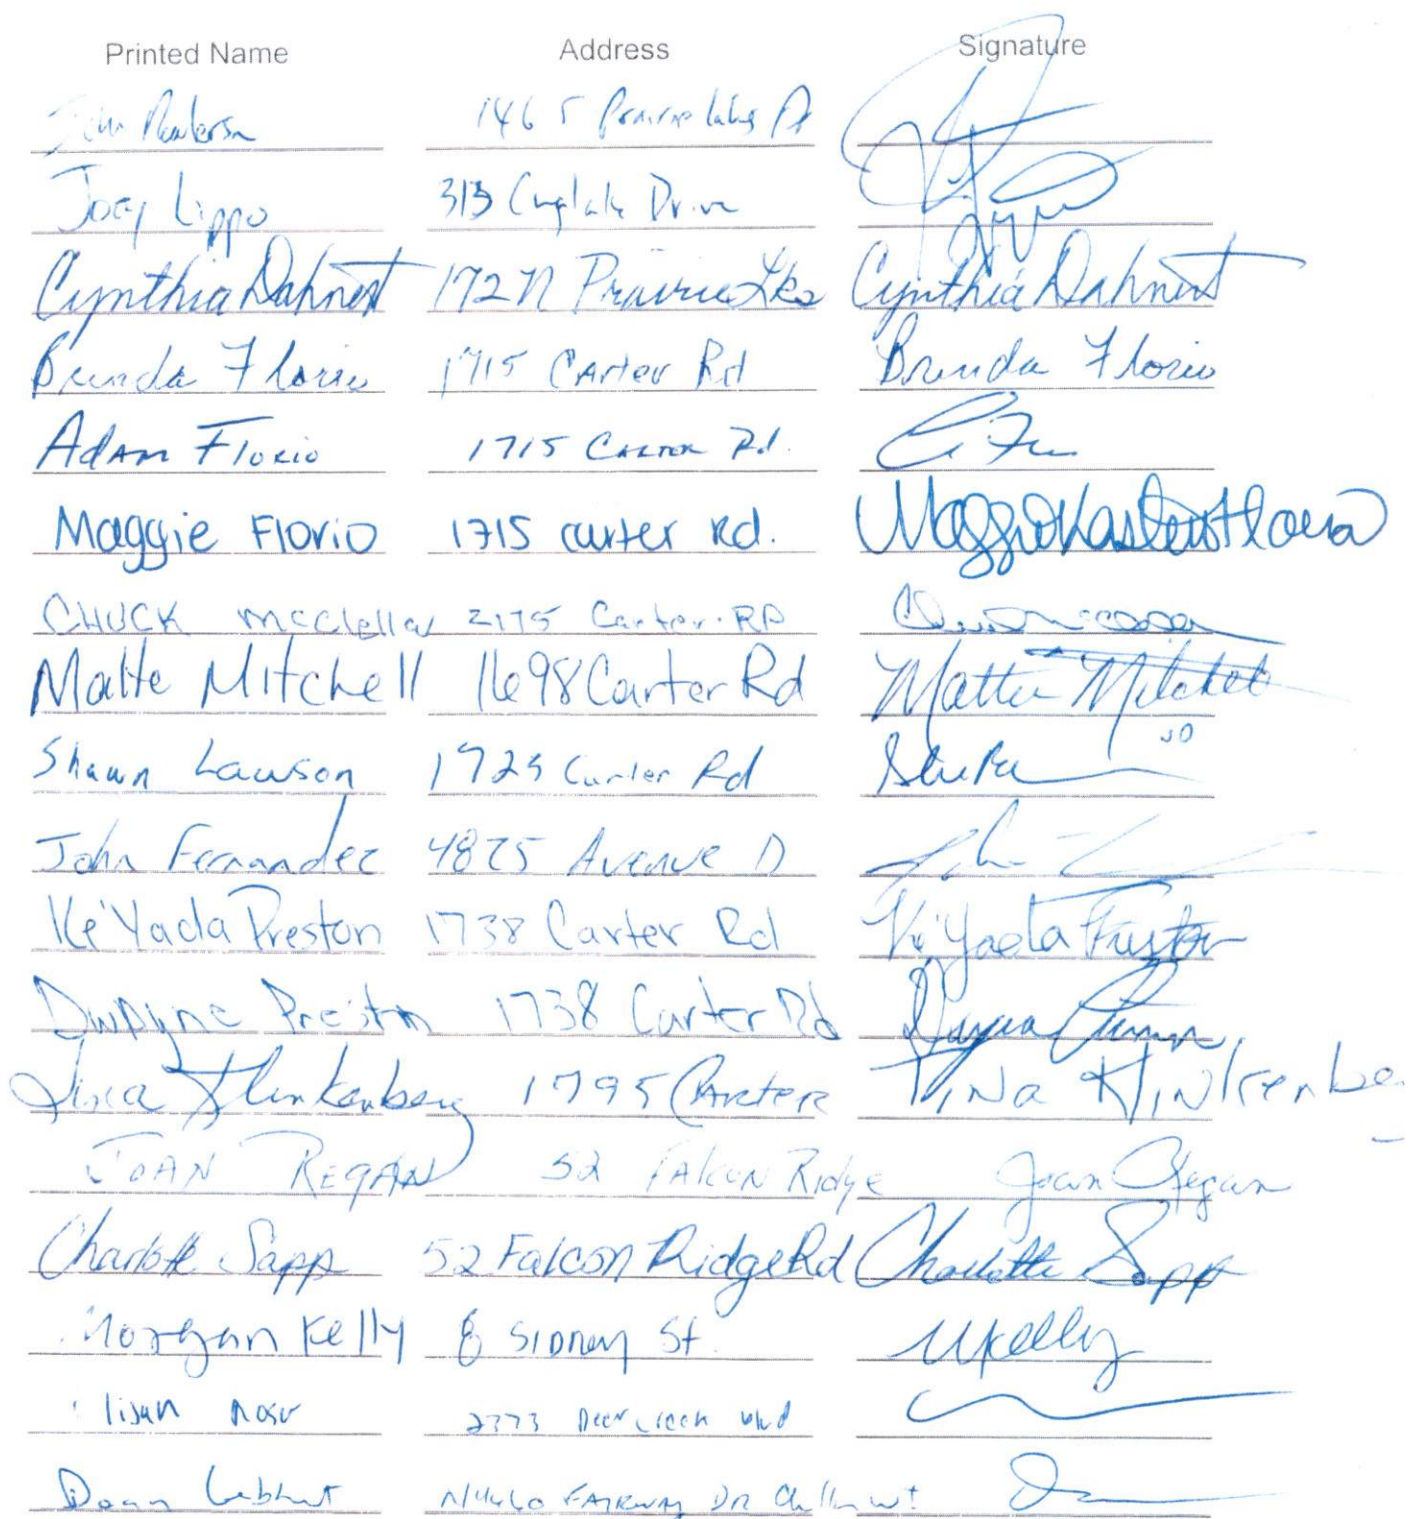 Printed Name Address Signature
1465 Prairie Lakes Dr
Joey Lippo 313 Drive
Cynthia Dahnert 172 N Prairie Lks Cynthia Dahnert
Brenda Florio 1715 Carter Rd Brenda Florio
Adam Florio 1715 Carter Rd.
Maggie Florio 1715 Carter Rd. Maggie Florio
CHUCK McClellan 2175 Carter RD
Matte Mitchell 1698 Carter Rd Mattie Mitchell
Shawn Lawson 1725 Carter Rd
John Fernandez 4875 Avenue D
Ke'Yada Preston 1738 Carter Rd Ke'Yada Preston
Dwayne Preston 1738 Carter Rd
Tina Klinkenberg 1795 Carter Tina Klinkenbe
JOAN REGAN 52 FALCON Ridge Joan Regan
Charlotte Sapp 52 Falcon Ridge Rd Charlotte Sapp
Morgan Kelly 8 SIDNEY St. MKelly
2373 Deer Creek blvd
Dean N4460 FAIRWAY DR